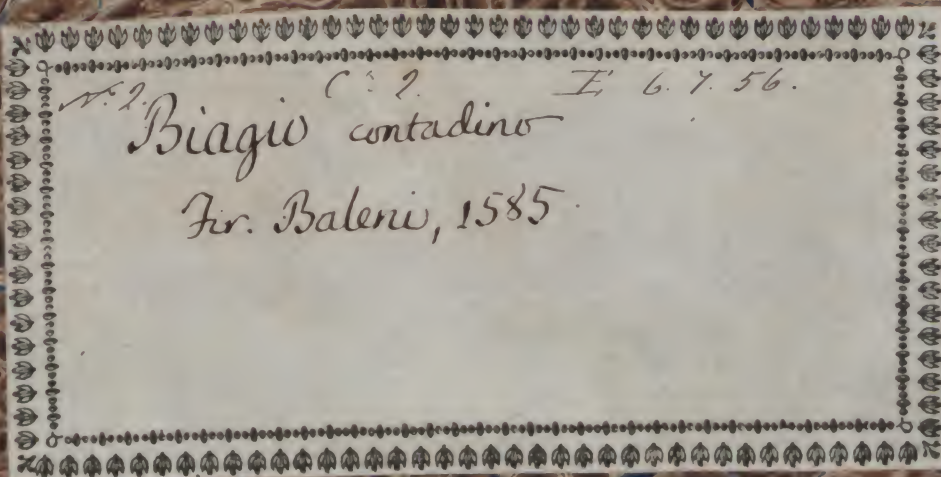 No. 2. C: 2. E 6. 7. 56.
Biagio contadino
Fir. Baleni, 1585.